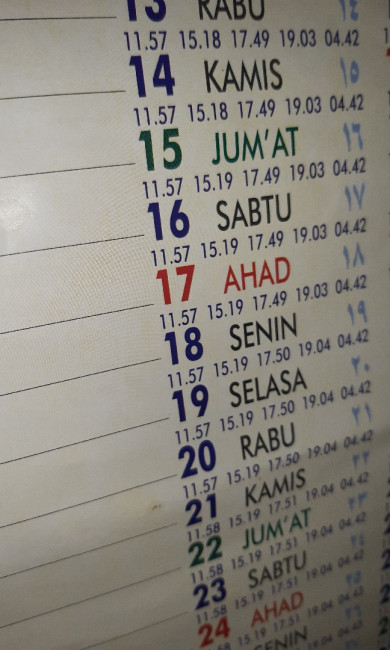 13 RABU ١٤
11.57 15.18 17.49 19.03 04.42
14 KAMIS ١٥
11.57 15.18 17.49 19.03 04.42
15 JUM'AT ١٦
11.57 15.19 17.49 19.03 04.42
16 SABTU ١٧
11.57 15.19 17.49 19.03 04.42
17 AHAD ١٨
11.57 15.19 17.49 19.03 04.42
18 SENIN ١٩
11.57 15.19 17.50 19.04 04.42
19 SELASA ٢٠
11.57 15.19 17.50 19.04 04.42
20 RABU ٢١
11.57 15.19 17.50 19.04 04.42
21 KAMIS ٢٢
11.58 15.19 17.51 19.04 04.42
22 JUM'AT ٢٣
11.58 15.19 17.51 19.04 04.42
23 SABTU ٢٤
11.58 15.19 17.51 19.04 04.42
24 AHAD ٢٥
SENIN ٢٦